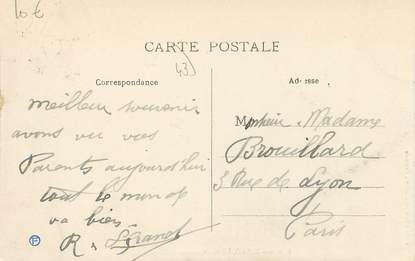 10 €
CARTE POSTALE
43
Correspondance
Adresse
meilleur souvenir
avons vu vos
Parents aujourd'hui
tout le monde
va bien
R
Monsieur. Madame
Brouillard
3 Rue de Lyon
Paris